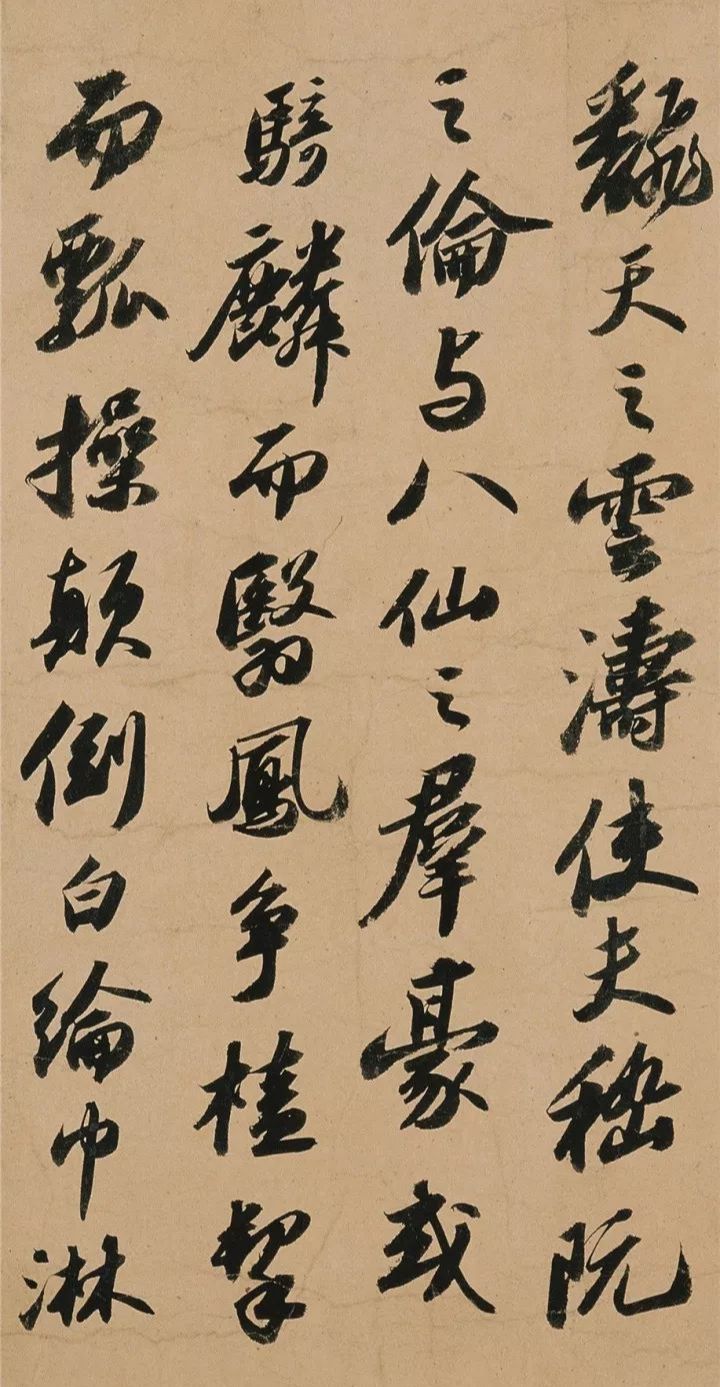 翻天之雲濤使夫嵇阮
之倫与八仙之羣豪或
騎麟而翳鳳争榼挈
而瓢操顛倒白綸巾淋